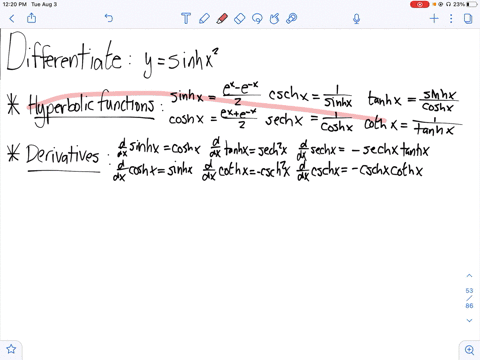 12:20 PM Tue Aug 3
23%
Differentiate: y = sinhx²
* Hyperbolic functions: sinhx = (eˣ - e⁻ˣ)/2 cschx = 1/sinhx tanhx = sinhx/coshx
coshx = (eˣ + e⁻ˣ)/2 sechx = 1/coshx cothx = 1/tanhx
* Derivatives: d/dx sinhx = coshx d/dx tanhx = sech²x d/dx sechx = - sechx tanhx
d/dx coshx = sinhx d/dx cothx = -csch²x d/dx cschx = -cschx cothx
53
/
86